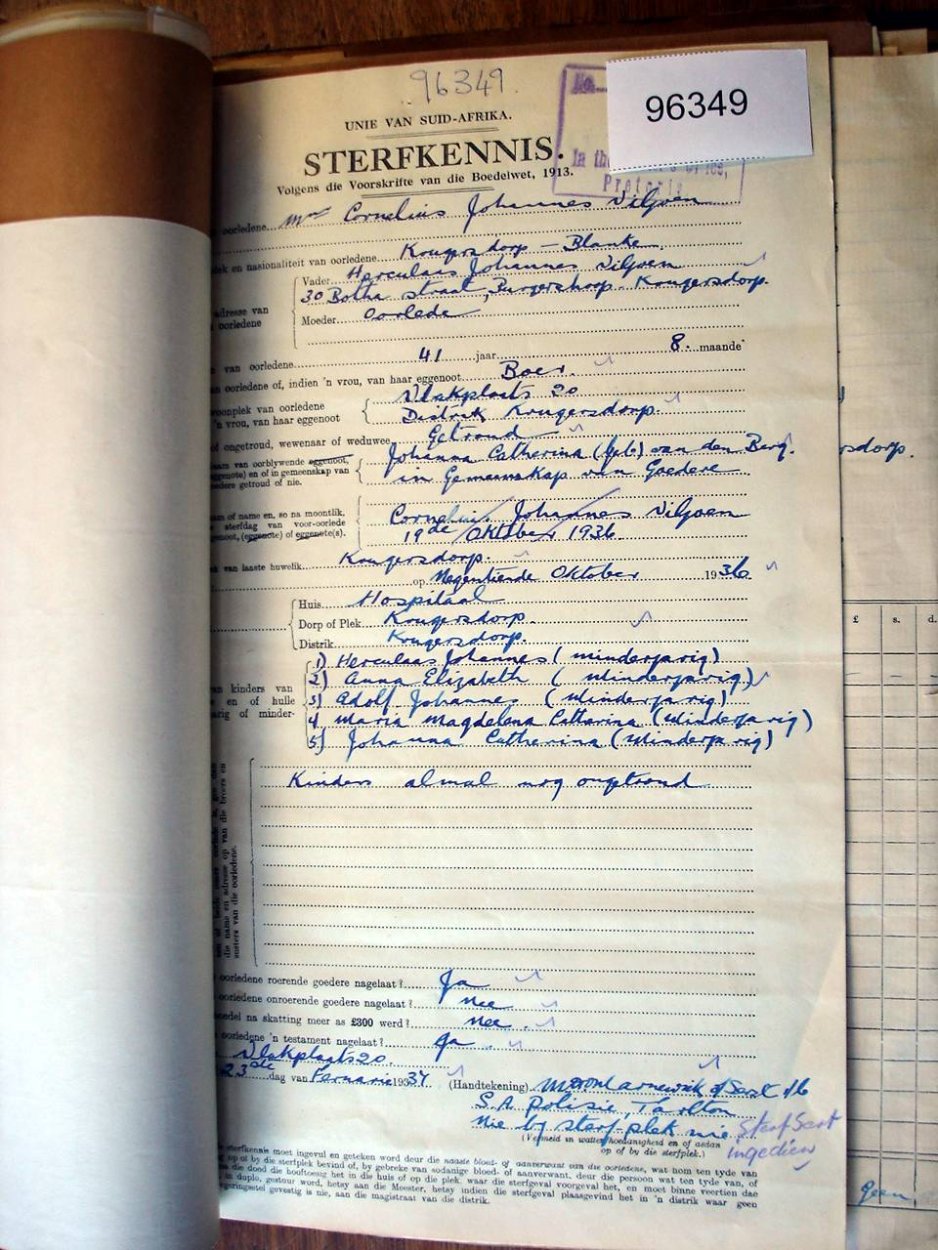 96349
96349
UNIE VAN SUID-AFRIKA.
STERFKENNIS.
Volgens die Voorskrifte van die Boedelwet, 1913.
In the
Pretoria
oorledene Cornelius Johannes Viljoen
en nasionaliteit van oorledene Krugersdorp - Blanke.
Vader Herculaas Johannes Viljoen
30 Botha straat, Burgershorp - Krugersdorp.
adresse van
oorledene
Moeder Oorlede
van oorledene 41 jaar 8. maande
oorledene of, indien 'n vrou, van haar eggenoot Boer.
Vlakplaats 20
woonplek van oorledene
'n vrou, van haar eggenoot
Distrik Krugersdorp.
of ongetroud, wewenaar of weduwee Getroud
van oorblywende eggenoot,
eggenote) en of in gemeenskap van
goedere getroud of nie.
Johanna Catherina (geb) van den Berg.
in Gemeenskap van Goedere
rsdorp.
of name en, so na moontlik,
sterfdag van voor-oorlede
(eggenote) of eggenote(s).
Cornelius Johannes Viljoen
19de Oktober 1936.
van laaste huwelik. Krugersdorp.
op Negentiende Oktober 1936
Huis Hospitaal
Dorp of Plek Krugersdorp.
Distrik Krugersdorp.
£ s. d.
van kinders van
en of hulle
of minder-
1) Herculaas Johannes (minderjarig)
2) Anna Elizabeth (Minderjarig)
3) Adolf Johannes (Minderjarig)
4 Maria Magdelena Catharina (Minderjarig)
5) Johanna Catherina (Minderjarig)
Kinders almal nog ongetroud
die name en adresse op van die broers en
susters van die oorledene.
oorledene roerende goedere nagelaat? Ja
oorledene onroerende goedere nagelaat? Nee
boedel na skatting meer as £300 werd? Nee.
oorledene 'n testament nagelaat? Ja.
Vlakplaats 20.
23ste dag van Feruarie 1937
(Handtekening)
S.A. Polisie, Tarlton
nie by sterf-plek nie.
Sterf Sert
ingedien
(Vermeld in watter hoedanigheid en of aldan
op of by die sterfplek.)
sterfkennis moet ingevul en geteken word deur die naaste bloed- of aanverwant van die oorledene, wat hom ten tyde van
of op of by die sterfplek bevind of, by gebreke van sodanige bloed- of aanverwant, deur die persoon wat ten tyde van, of
die dood die hooftoesig het in die huis of op die plek, waar die sterfgeval voorgeval het, en moet binne veertien dae
in duplo, gestuur word, hetsy aan die Meester, hetsy indien die sterfgeval plaasgevind het in 'n distrik waar geen
gevestig is nie, aan die magistraat van die distrik.
geen